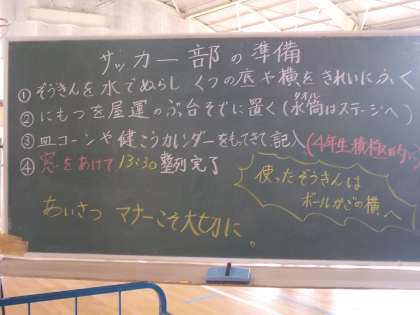 サッカー部の準備
①ぞうきんを水でぬらし くつの底や横をきれいにふく
②にもつを屋運のぶ台そでに置く(水筒はステージへ)
タオル
③皿コーンや健こうカレンダーをもってきて記入(4年生積極的に)
④窓をあけて13:30整列完了
使ったぞうきんは
ボールかごの横へ
あいさつ マナーこそ大切に。